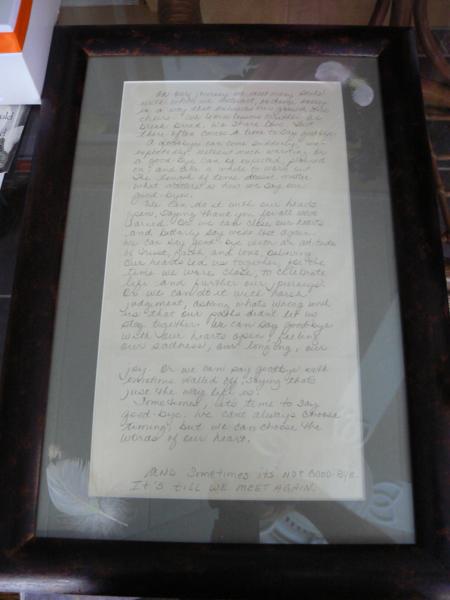 On our journey we meet many souls
with whom we interact, sharing energy
in a way that enhances our growth and
theirs. We learn lessons together, we
break bread, we share love. But
then often comes a time to say good-bye.
A good-bye can come suddenly, un-
expectedly, without much warning. Or
a good-bye can be expected, planned
on, and take a while to work out.
The length of time doesn't matter.
What matters is how we say our
good-byes.
We can do it with our hearts
open, saying thank you for all we've
learned. Or we can close our hearts
and bitterly say we've lost again.
We can say good-bye with an attitude
of trust, faith and love, believing
our hearts led us together for the
time we were close, to celebrate
life and further our journeys.
Or we can do it with harsh
judgement, asking what's wrong with
us that our paths didn't let us
stay together. We can say good-bye
with our hearts open, feeling
our sadness, our longing, our
joy. Or we can say goodbye with
emotions walled off, saying that's
just the way life is.
Sometimes, it's time to say
good-bye. We can't always choose
timing, but we can choose the
words of our heart.
AND Sometimes it's NOT GOOD-BYE.
IT'S TILL WE MEET AGAIN.